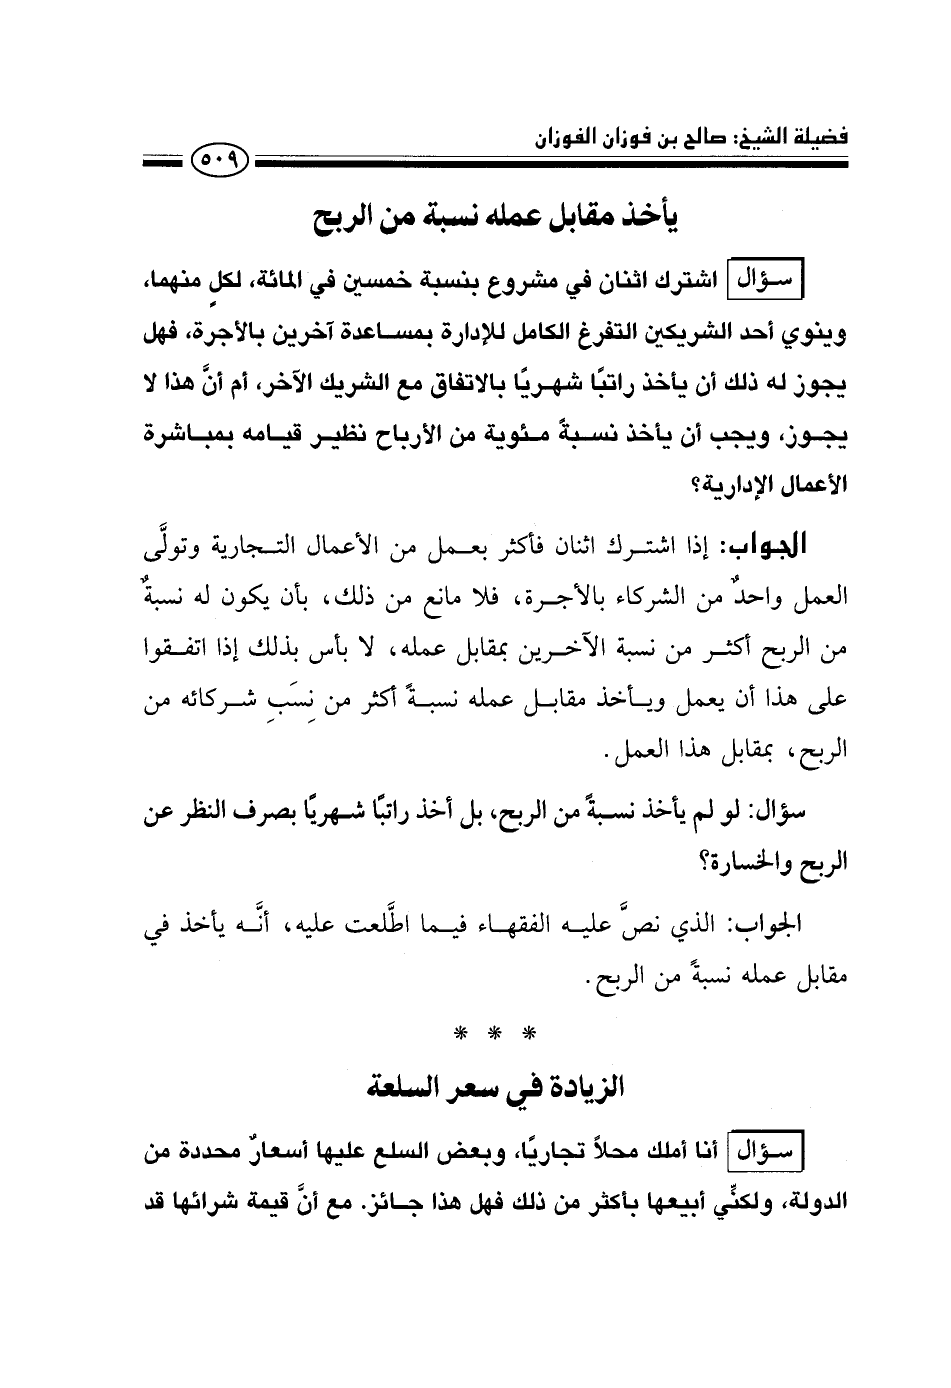 فضيلة الشيخ: صالح بن فوزان الفوزان
٥٠٩
يأخذ مقابل عمله نسبة من الربح
سؤال اشترك اثنان في مشروع بنسبة خمسين في المائة، لكلٍ منهما،
وينوي أحد الشريكين التفرغ الكامل للإدارة بمساعدة آخرين بالأجرة، فهل
يجوز له ذلك أن يأخذ راتبًا شهريًا بالاتفاق مع الشريك الآخر، أم أنَّ هذا لا
يجوز، ويجب أن يأخذ نسبةً مئوية من الأرباح نظير قيامه بمباشرة
الأعمال الإدارية؟
الجواب: إذا اشترك اثنان فأكثر بعمل من الأعمال التجارية وتولَّى
العمل واحدٌ من الشركاء بالأجرة، فلا مانع من ذلك، بأن يكون له نسبةٌ
من الربح أكثر من نسبة الآخرين بمقابل عمله، لا بأس بذلك إذا اتفقوا
على هذا أن يعمل ويأخذ مقابل عمله نسبةً أكثر من نِسَبِ شركائه من
الربح، بمقابل هذا العمل.
سؤال: لو لم يأخذ نسبةً من الربح، بل أخذ راتبًا شهريًا بصرف النظر عن
الربح والخسارة؟
الجواب: الذي نصَّ عليه الفقهاء فيما اطَّلعت عليه، أنَّه يأخذ في
مقابل عمله نسبةً من الربح.
* * *
الزيادة في سعر السلعة
سؤال أنا أملك محلاً تجاريًا، وبعض السلع عليها أسعارٌ محددة من
الدولة، ولكنِّي أبيعها بأكثر من ذلك فهل هذا جائز. مع أنَّ قيمة شرائها قد